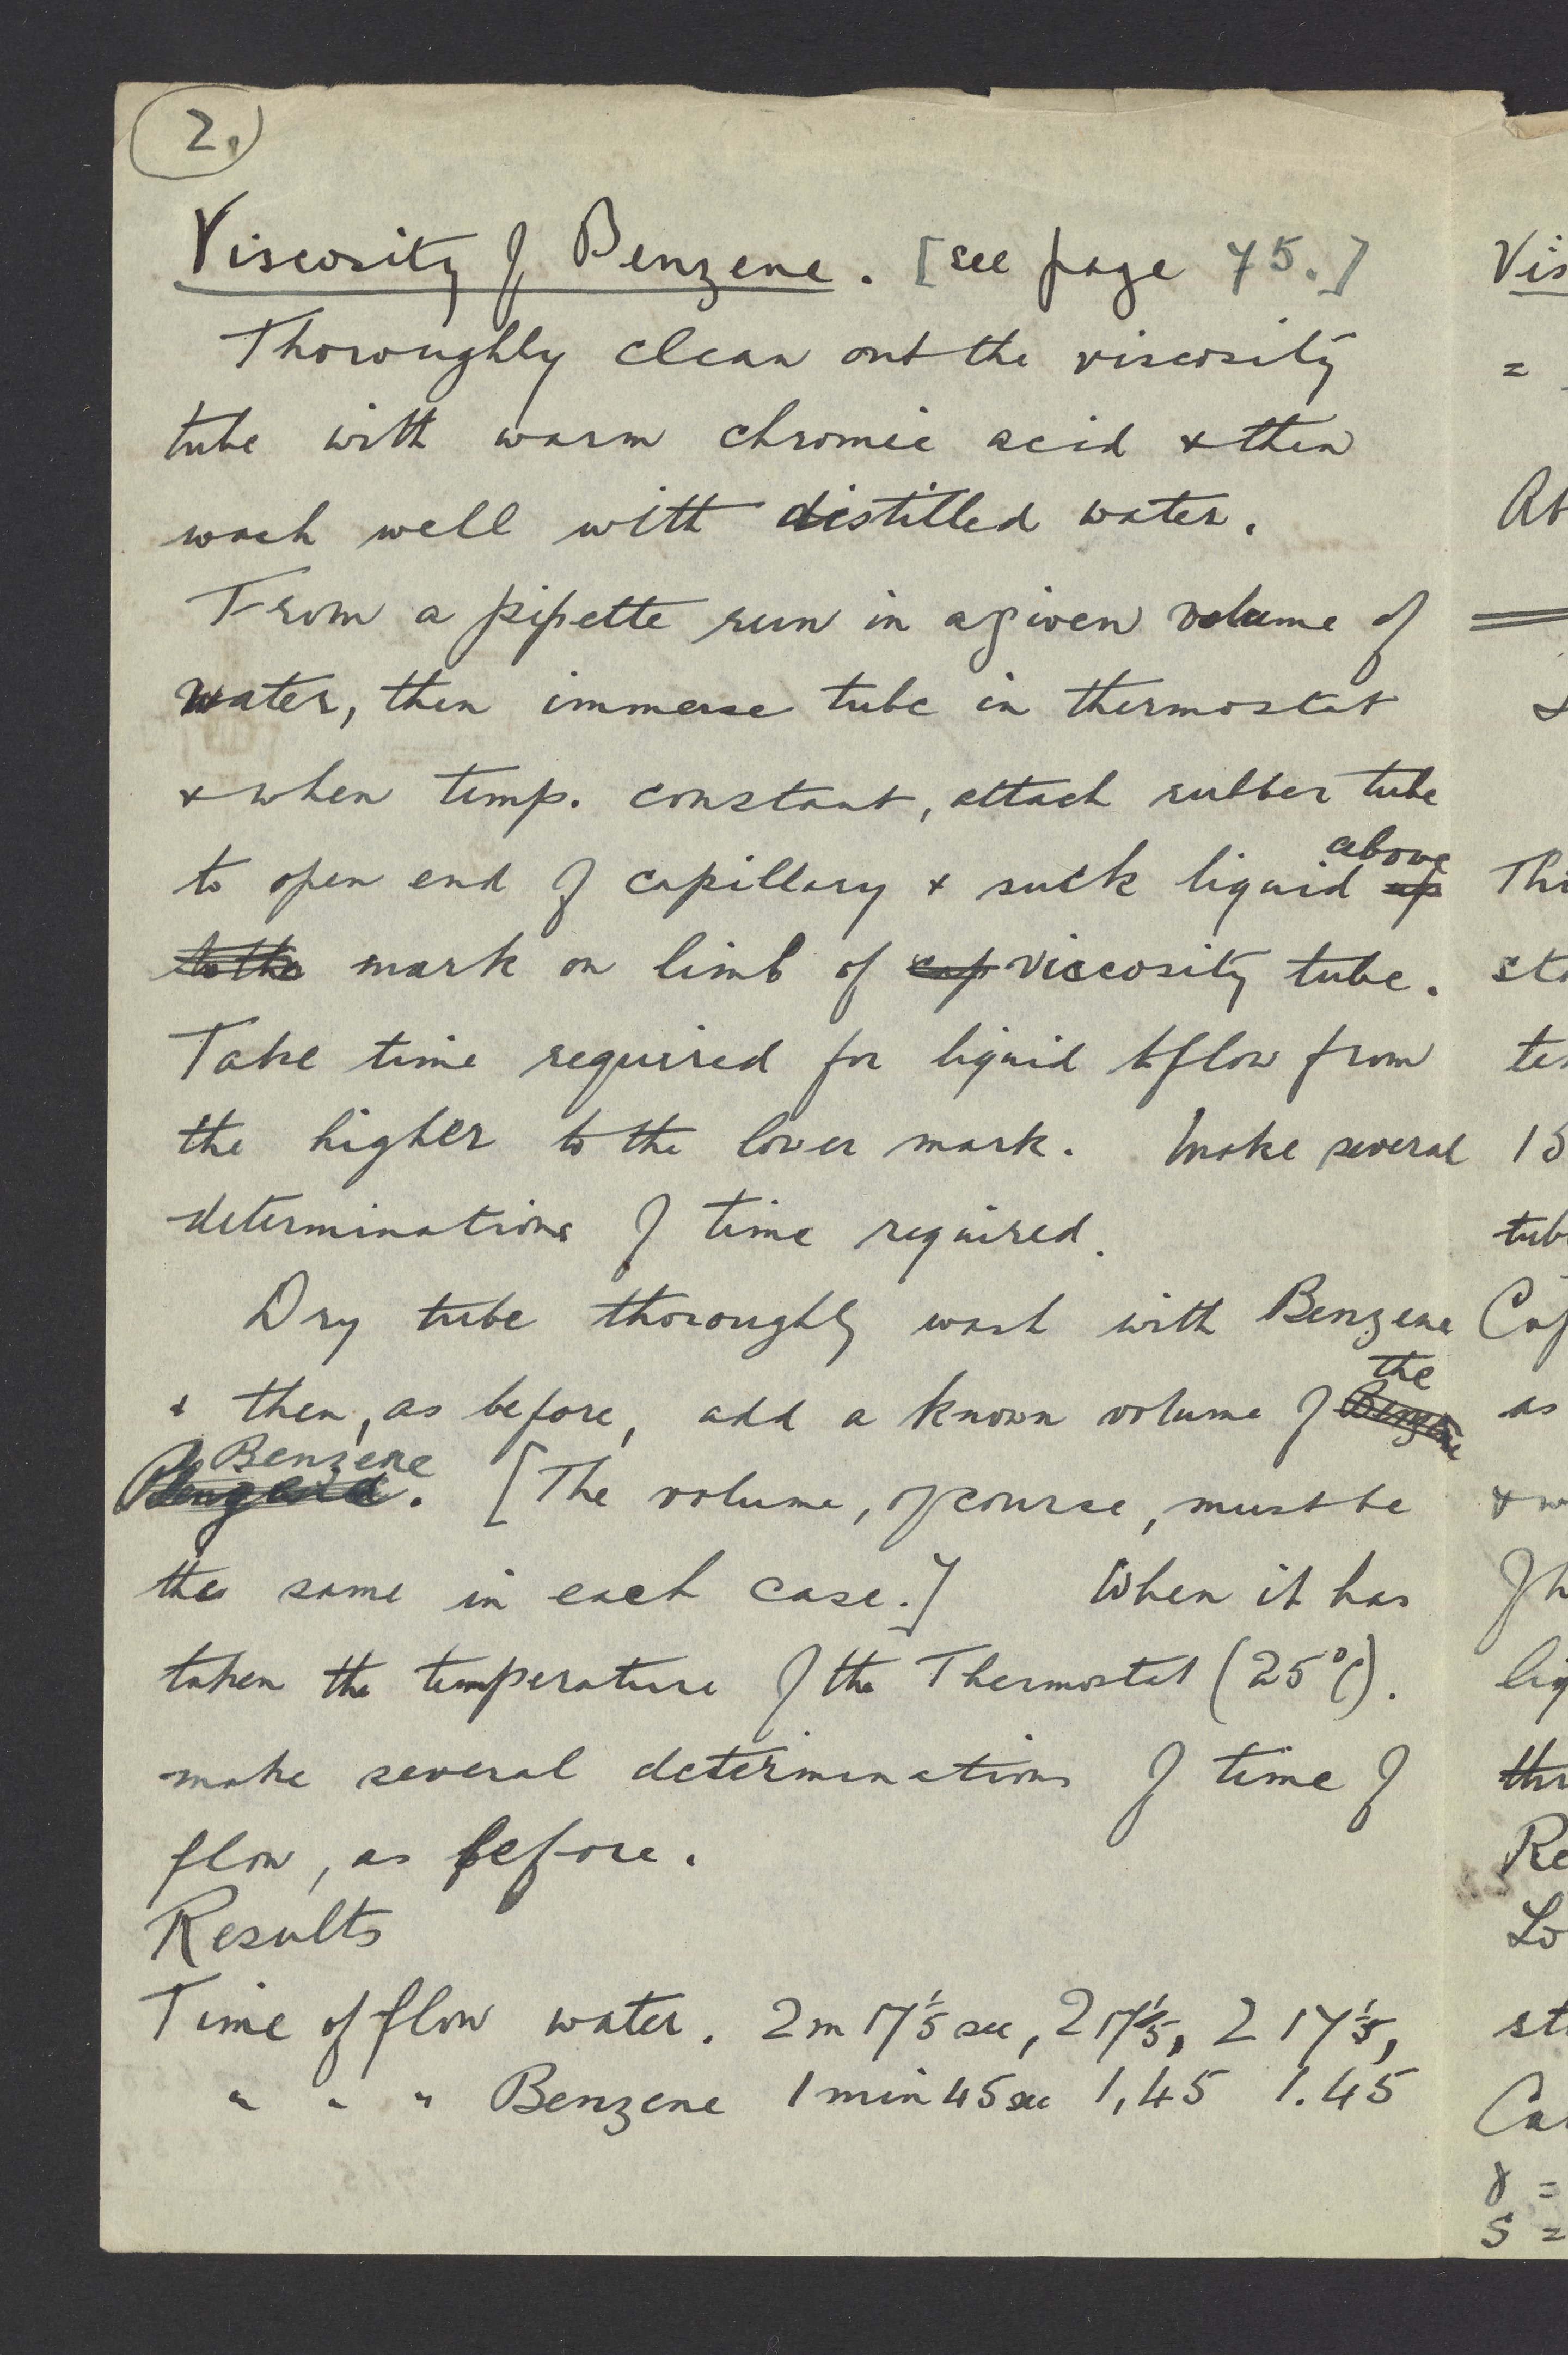 2.
Viscosity of Benzene. [see page 75.]
Thoroughly clean out the viscosity
tube with warm chromic acid & then
wash well with distilled water.
From a pipette run in a given volume of
water, then immerse tube in thermostat
& when temp. constant, attach rubber tube
to open end of capillary & suck liquid above up
to the mark on limb of cap viscosity tube.
Take time required for liquid to flow from
the higher to the lower mark. Make several
determinations of time required.
Dry tube thoroughly wash with Benzene
& then, as before, add a known volume of the Benzene
Benzene. [The volume, of course, must be
the same in each case.] When it has
taken the temperature of the Thermostat (25°C).
make several determinations of time of
flow, as before.
Results
Time of flow water. 2m 17 1/5 sec, 2 17 1/5, 2 17 1/5,
" " " Benzene 1 min 45 sec 1,45 1.45
Vis
=
Ab
Thi
sta
tem
15
tub
Cap
as
& w
of h
liq
thr
Re
Lo
st
Ca
γ =
S =